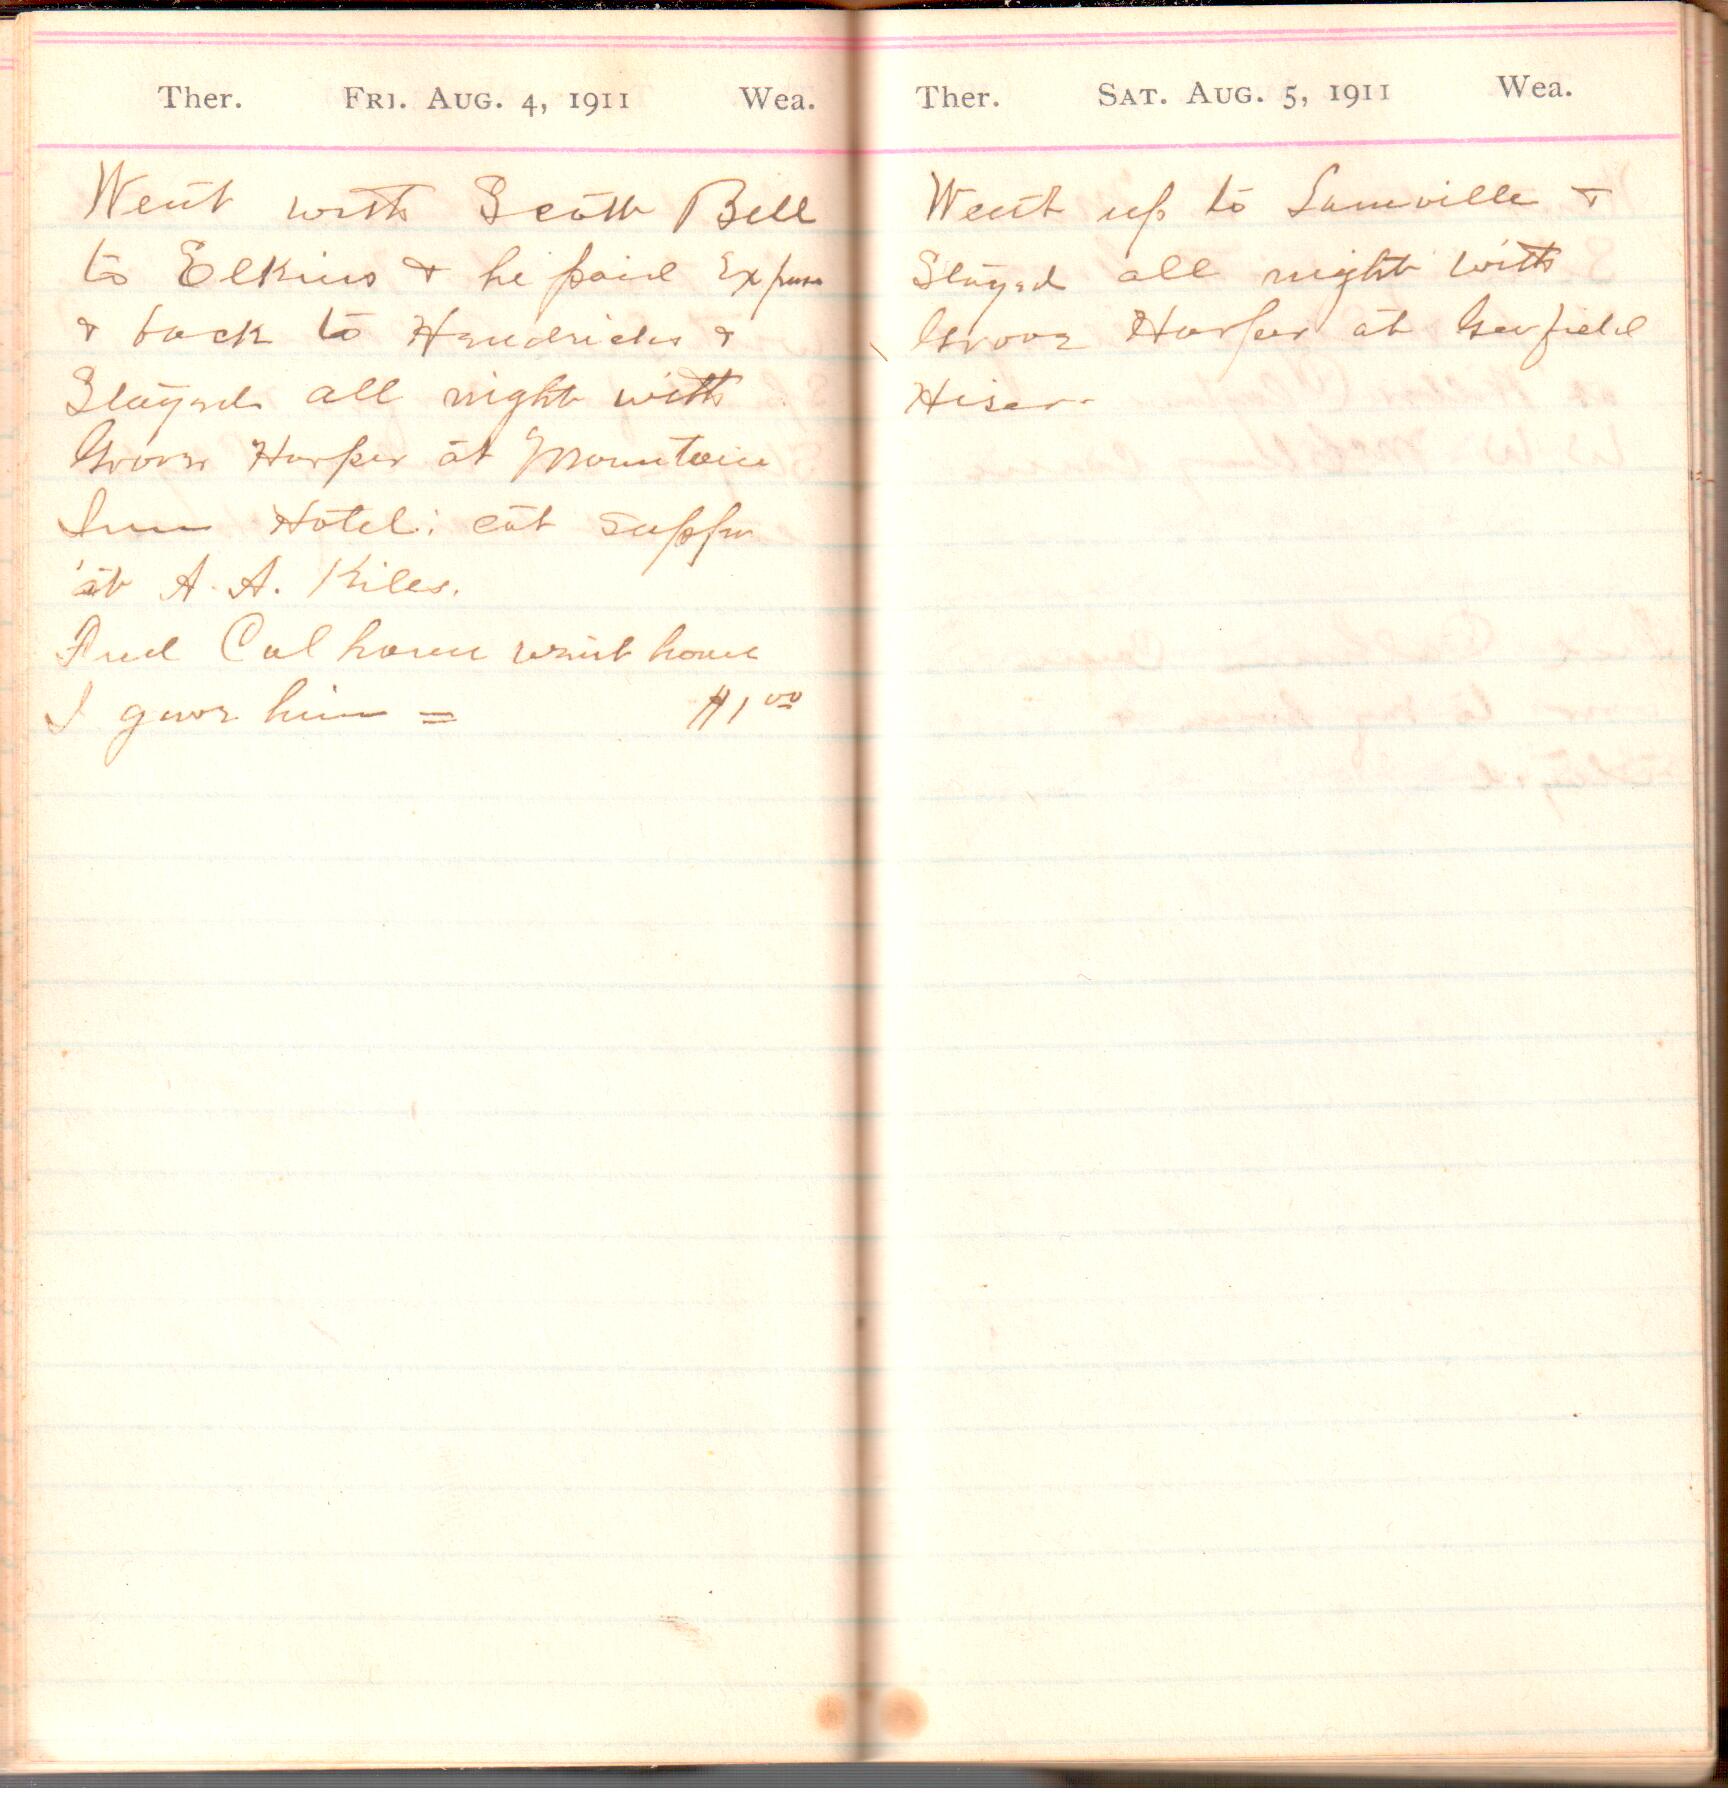 Ther. Fri. Aug. 4, 1911 Wea.
Went with Scott Bell
to Elkins & he paid Expense
& back to Hendricks &
Stayed all night with
Grover Harper at Mountain
Inn Hotel: eat supper
at A. A. Kiles.
Fred Calhoun went home
I gave him = $1.00
Ther. Sat. Aug. 5, 1911 Wea.
Went up to Laneville &
Stayed all night with
Grover Harper at Garfield
Hiser.